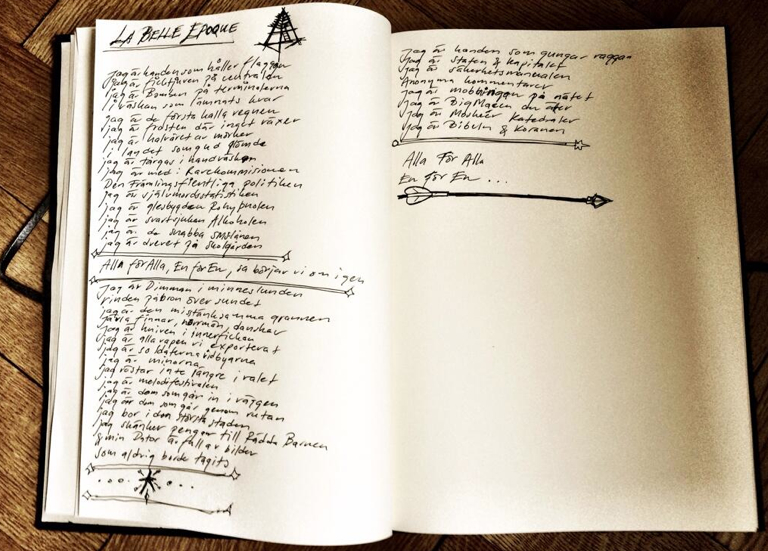 LA BELLE EPOQUE
jag är handen som håller flaggan
jag är fickтjuven på centralen
jag är Bomben på terminalerna
i väskan som lämnats kvar
jag är de första kalla regnen
jag är frosten där inget växer
jag är halvåret av mörker
i landet som gud glömde
jag är tårgas i handväskan
jag är med i Rarekommissionen
Den Främlingsfientliga politiken
jag är självmordsstatistiken
jag är glesbygden Rohypnolen
jag är svartsjukan Alkoholen
jag är de snabba smslånen
jag är drevet på skolgården
Alla för Alla, En för En, så börjar vi om igen
jag är Dimman i minneslunden
vinden på bron över sundet
jag är den misstänksamma grannen
jävla finnar, norrmän, danskar
jag är kniven i innerfickan
jag är alla vapen vi exporterat
jag är soldaterna vid byarna
jag är minorna
jag röstar inte längre i valet
jag är melodifestivalen
jag är dom som går in i väggen
jag är dom som går genom rutan
jag bor i den största staden
jag skänker pengar till Rädda Barnen
& min Dator är full av bilder
som aldrig borde tagits
jag är handen som gungar vaggan
jag är Staten & Kapitalet
jag är säkerhetsmanualen
Anonyma kommentarer
jag är mobbingen på nätet
jag är BigMacen du äter
jag är Moskéer Katedraler
jag är Bibeln & Koranen
Alla För Alla
En för En ...